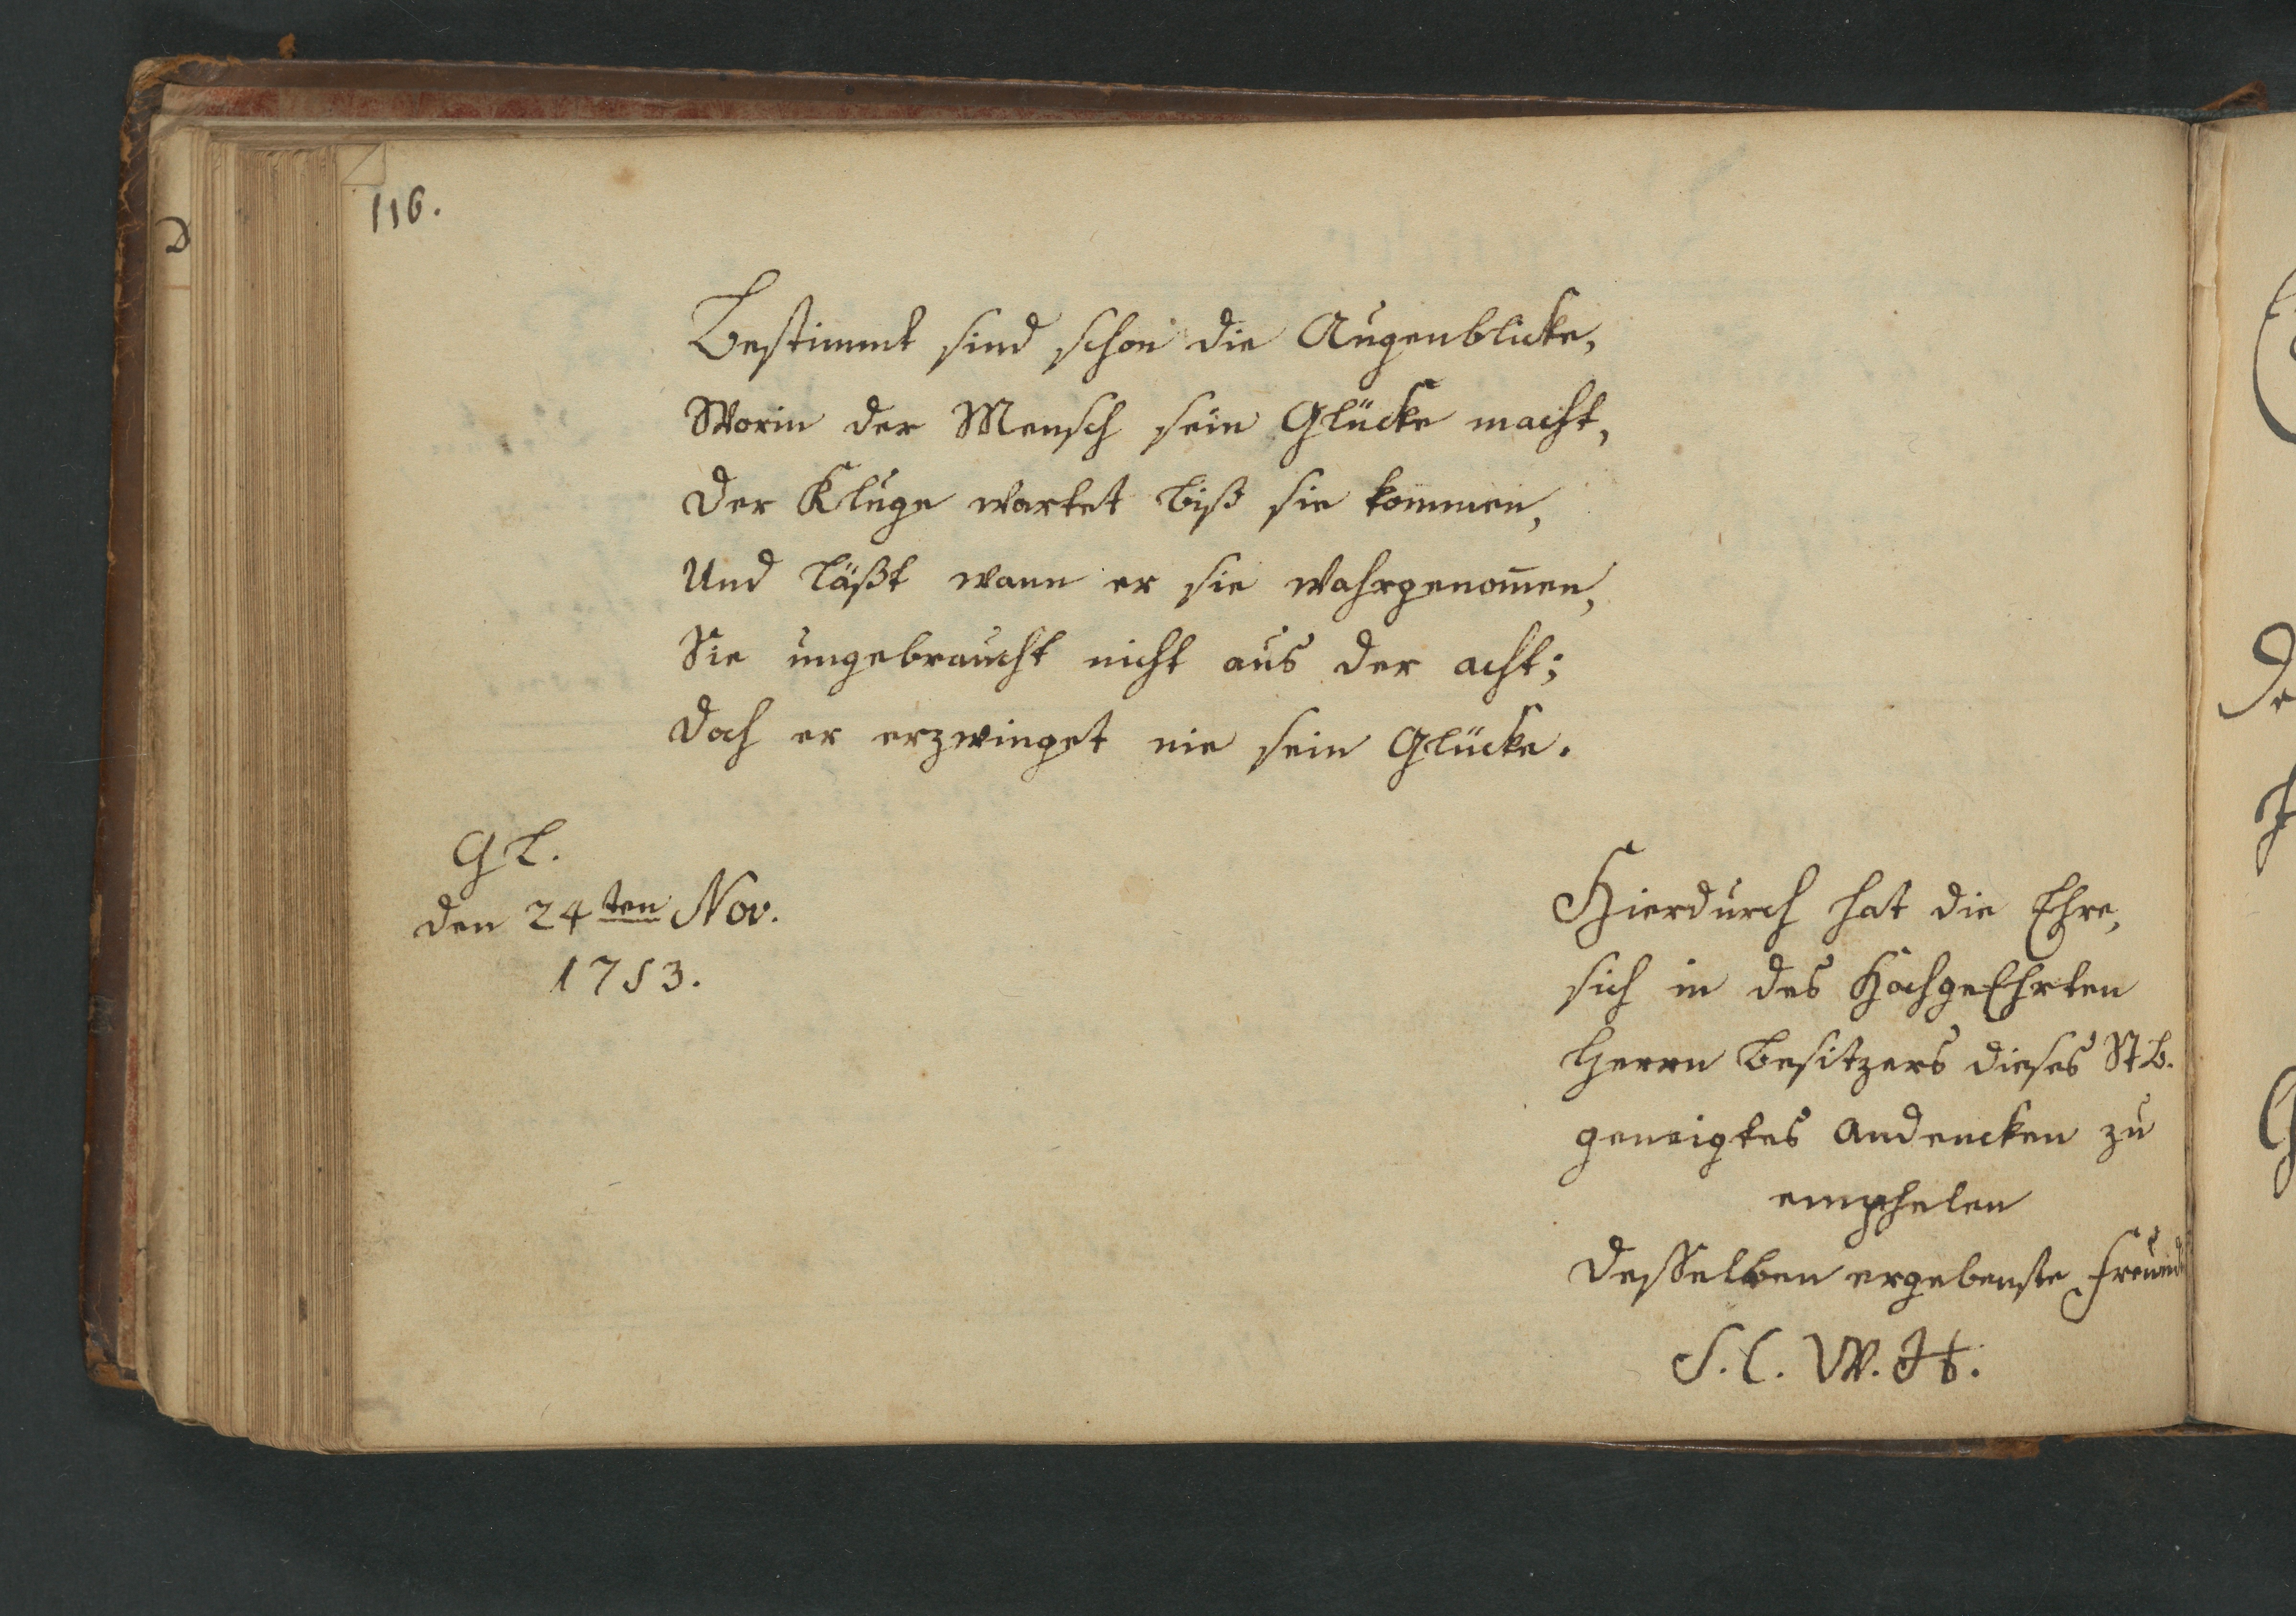 116.
Bestimmt sind schon die Augenblicke,
Worin der Mensch sein Glücke macht,
Der Kluge wartet biß sie kommen,
Und läßt wann er sie wahrgenom̄en,
Sie ungebraucht nicht aus der acht;
Doch er erzwinget nie sein Glücke.
Gl.
den 24ten Nov.
1753.
Hierdurch hat die Ehre,
sich in des HochgeEhrten
Herrn Besitzers dieses StB.
geneigtes Andencken zu
emphelen
desselben ergebenste Freund
S. C. W. H.